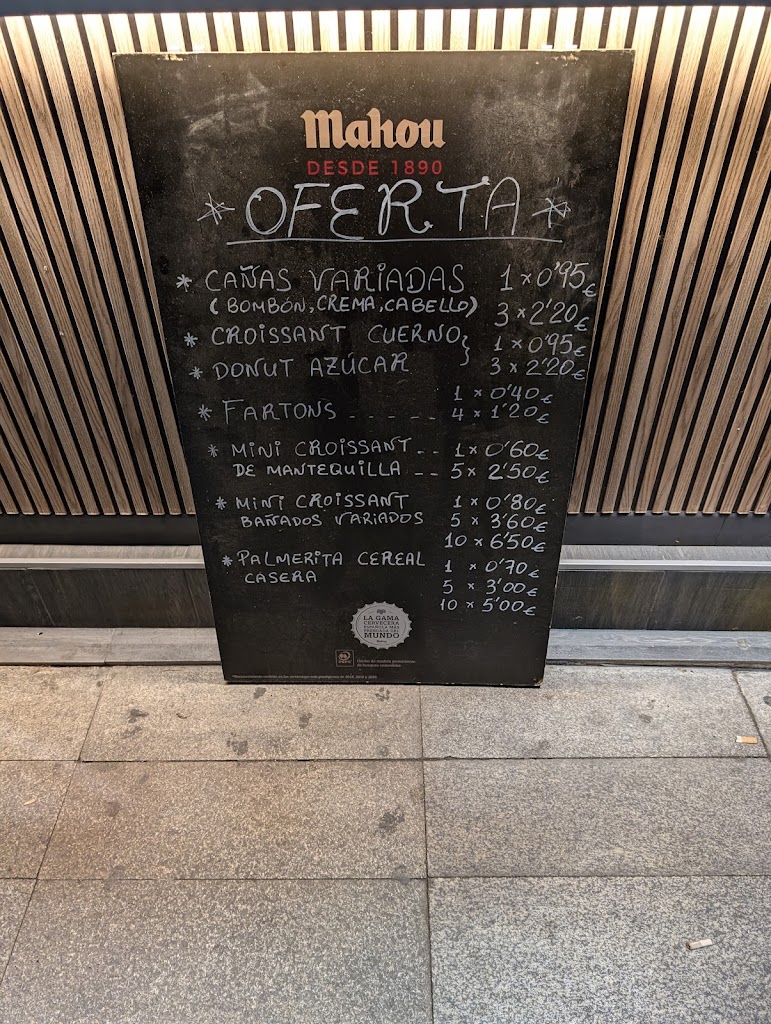 Mahou
DESDE 1890
* OFERTA *
* CAÑAS VARIADAS 1 x 0'95 €
( BOMBÓN, CREMA, CABELLO) 3 x 2'20 €
* CROISSANT CUERNO } 1 x 0'95 €
* DONUT AZÚCAR 3 x 2'20 €
1 x 0'40 €
* FARTONS _ _ _ _ _ 4 x 1'20 €
* MINI CROISSANT _ _ 1 x 0'60 €
DE MANTEQUILLA _ _ 5 x 2'50 €
* MINI CROISSANT 1 x 0'80 €
BAÑADOS VARIADOS 5 x 3'60 €
10 x 6'50 €
* PALMERITA CEREAL 1 x 0'70 €
CASERA 5 x 3'00 €
10 x 5'00 €
LA GAMA
CERVECERA
ESPAÑOLA MÁS
PREMIADA DEL
MUNDO
PEFC